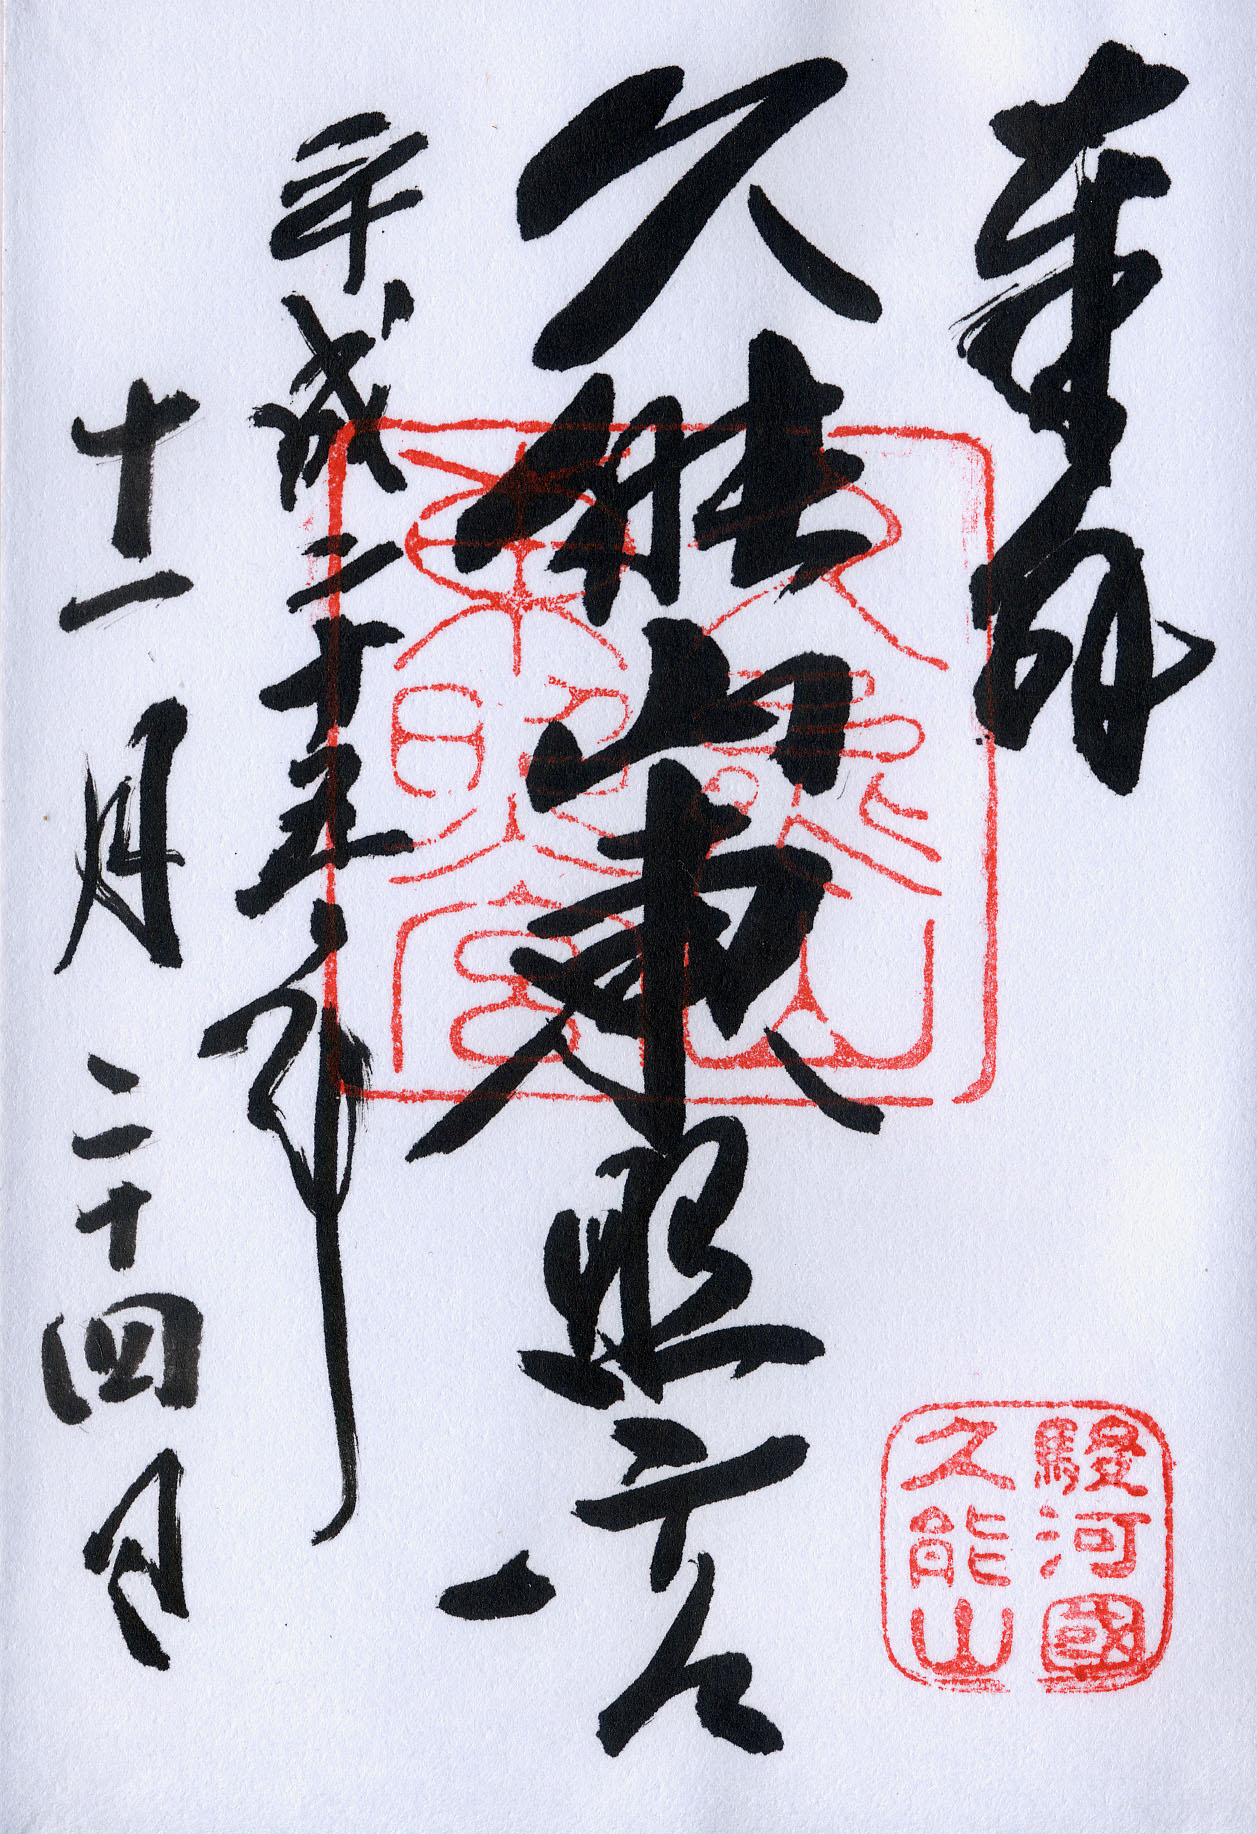 奉拝
久能山東照宮
平成二十五年
十一月二十四日
久能山
東照宮
駿河國
久能山